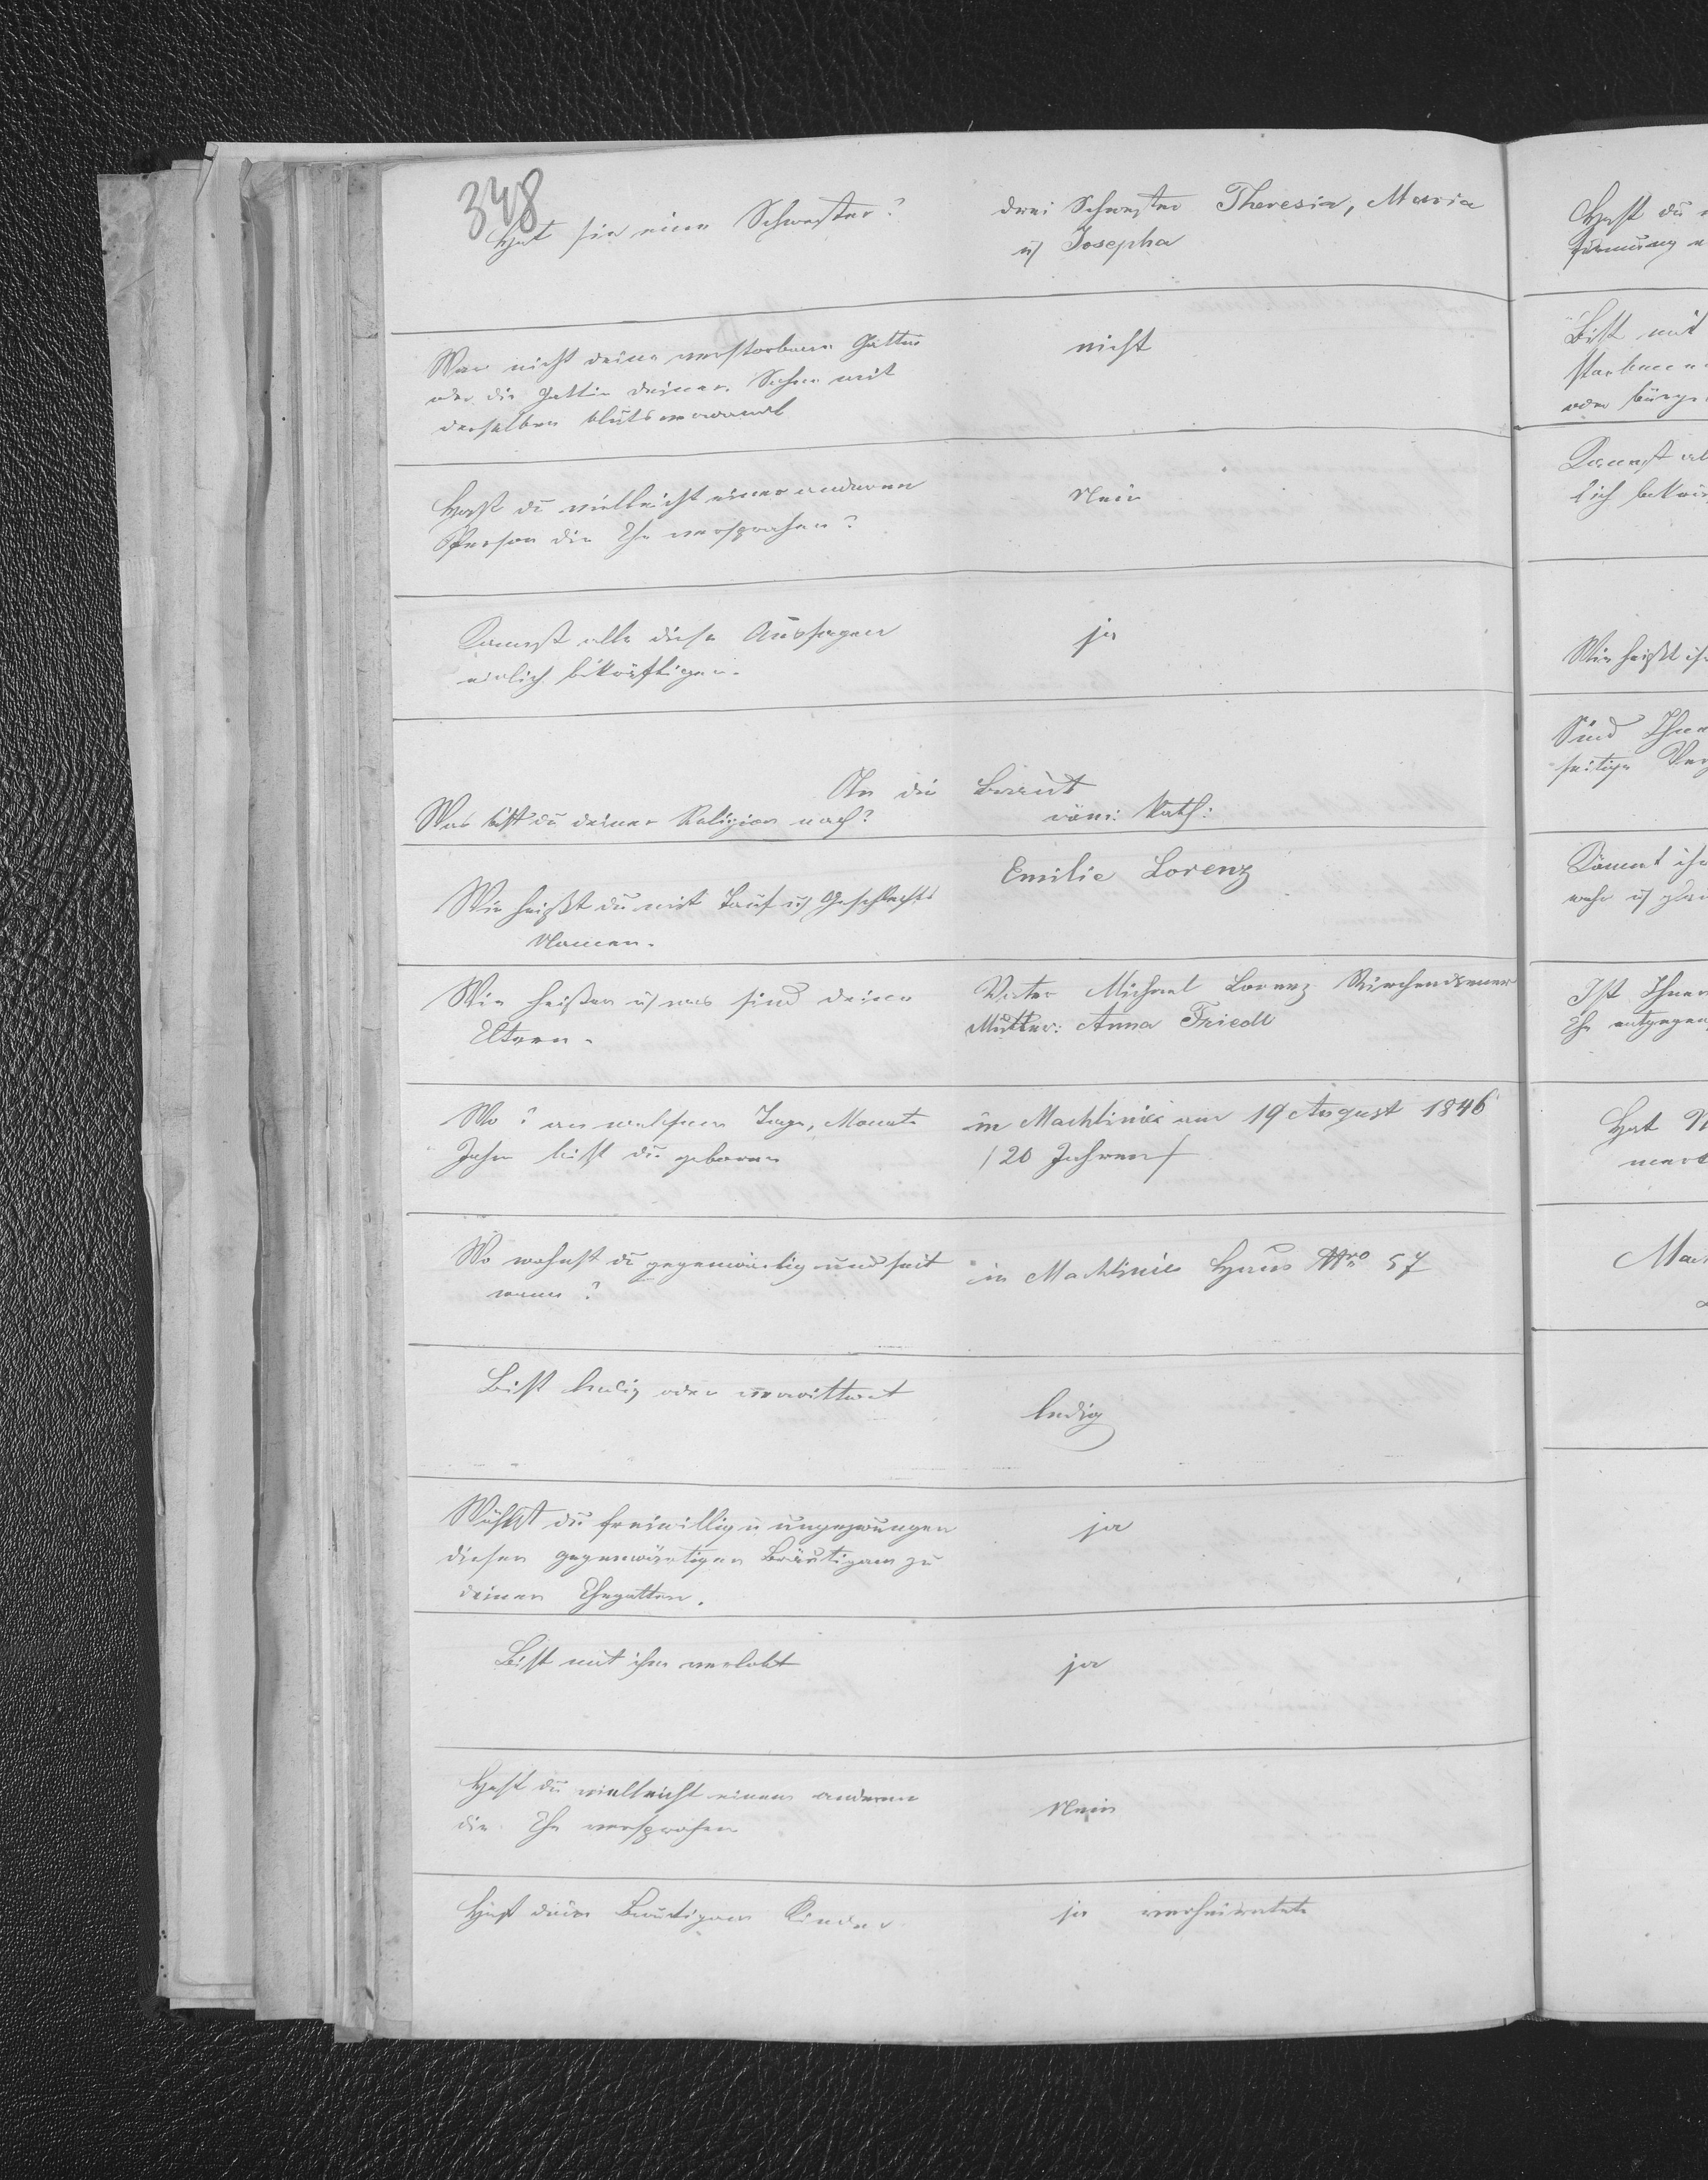 348
Hat sie eine Schwester?
drei Schwester Theresia, Maria
u Josepha
War nicht deine verstorbene Gattin
oder die Gattin deiner Sohne mit
derselben blutsverwandt
nicht
Hast du vielleicht einer anderen
Person die Ehe versprochen?
Nein
Kannst alle diese Aussagen
eidlich bekräftigen.
ja
An die Braut
Was bist du deiner Religion nach?
röm: kath:
Wie heißt du mit Tauf u Geschlechts
Namen.
Emilie Lorenz
Wie heißen u was sind deine
Eltern.
Vater Michael Lorenz
Mutter: Anna Friedl
Wo? an welchem Tage, Monate
Jahre bist du geboren
in Machlinie am 19 August 1846
/20 Jahren/
Wo wohnst du gegenwärtig und seit
wann?
in Machlinie Haus Nro 57
Bist ledig oder verwittwet
ledig
Wählst du freiwillig u ungezwungen
diesen gegenwärtigen Bräutigam zu
deinen Ehegatten.
ja
Bist mit ihm verlobt
ja
Hast du vielleicht einem anderen
die Ehe versprochen
Nein
Hat dein Bräutigam Kinder
ja verheiratete
Hast du
Firmung
Bist mit
oder
Kannst al
lich bekrä
Wie heißt ih
Sind Ihne
seitige
Könnt ihr
Ist Ihnen
Ehe entgegen
Hat
Mach